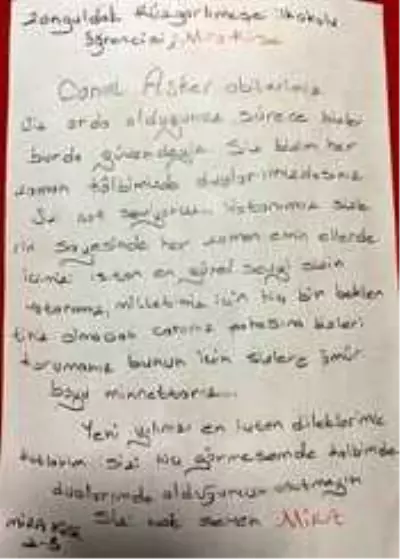 Zonguldak Rüzgarlımeşe İlkokulu
öğrencisi; Miraç
Canım Asker abilerimiz
Siz orda olduğunuz sürece bizler
burda güvendeyiz. Siz bizim her
zaman kalbimizde dualarımızdasınız
Sizi çok seviyoruz. Vatanımız sizle
rin sayesinde her zaman emin ellerde
en güzel sevgi sizin
vatanımız, milletimiz için hiç bir beklen
tiniz olmadan canınız pahasına bizleri
korumanız bunun için sizlere ömür
boyu minnettarız...
Yeni yılınızı en içten dileklerimle
kutlarım sizi hiç görmesemde kalbimde
dualarımda olduğunuzu unutmayın
Sizi çok seven
2-B